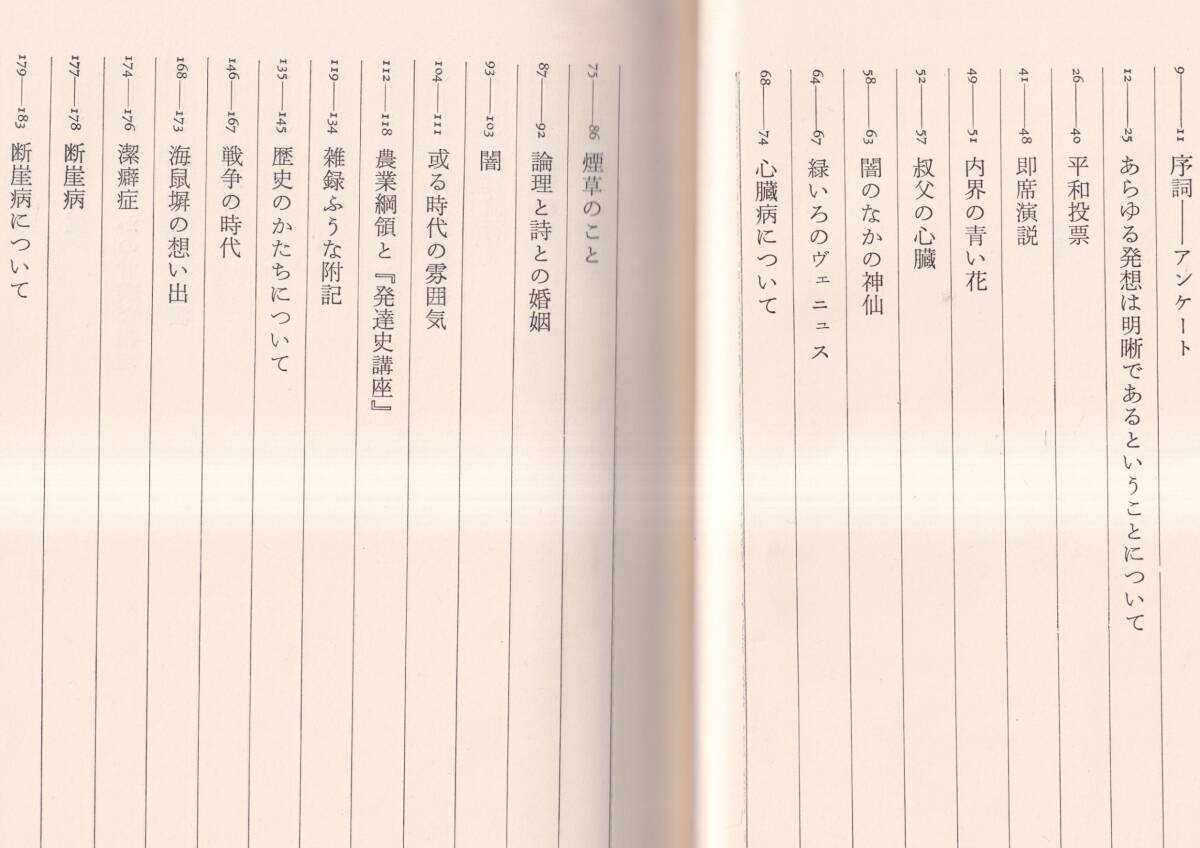 9——11 序詞——アンケート
12——25 あらゆる発想は明晰であるということについて
26——40 平和投票
41——48 即席演説
49——51 内界の青い花
52——57 叔父の心臓
58——63 闇のなかの神仙
64——67 緑いろのヴェニュス
68——74 心臓病について
75——86 煙草のこと
87——92 論理と詩との婚姻
93——103 闇
104——111 或る時代の雰囲気
112——118 農業綱領と『発達史講座』
119——134 雑録ふうな附記
135——145 歴史のかたちについて
146——167 戦争の時代
168——173 海鼠塀の想い出
174——176 潔癖症
177——178 断崖病
179——183 断崖病について